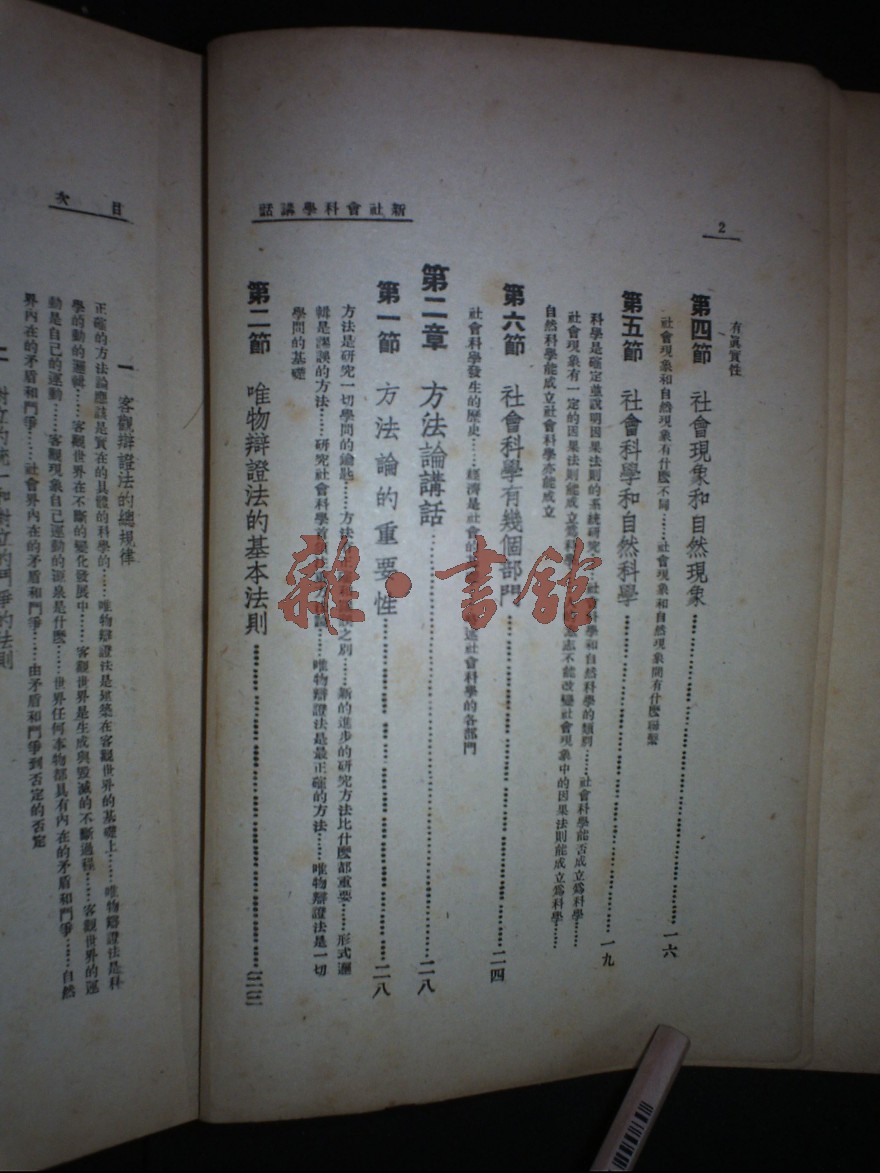 2
新社會科學講話
有眞實性
第四節 社會現象和自然現象……一六
社會現象和自然現象有什麼不同……社會現象和自然現象間有什麼
第五節 社會科學和自然科學……一九
科學是確定並說明因果法則的系統研究……社會科學和自然科學的類別……社會科學能否成立爲科學……
社會現象有一定的因果法則能成立爲科學 意志不能改變社會現象中的因果法則能成立爲科學……
自然科學能成立社會科學亦能成立
第六節 社會科學有幾個部門……二四
社會科學發生的歷史……經濟是社會的 社會科學的各部門
第二章 方法論講話……二八
第一節 方法論的重要性……二八
方法是研究一切學問的鑰匙……方法 之別……新的進步的研究方法比什麼都重要……形式邏
輯是謬誤的方法……研究社會科學首 唯物辯證法是最正確的方法……唯物辯證法是一切
學問的基礎
第二節 唯物辯證法的基本法則……三三
雜·書館
目次
一 客觀辯證法的總規律
正確的方法論應該是實在的具體的科學的……唯物辯證法是建築在客觀世界的基礎上……唯物辯證法是科
學的動的邏輯……客觀世界在不斷的變化發展中……客觀世界是生成與毀滅的不斷過程……客觀世界的運
動是自己的運動……客觀現象自己運動的源泉是什麼……世界任何本物都具有內在的矛盾和鬥爭……自然
界內在的矛盾和鬥爭……社會界內在的矛盾和鬥爭……由矛盾和鬥爭到否定的否定
二 對立的統一和對立的鬥爭的法則